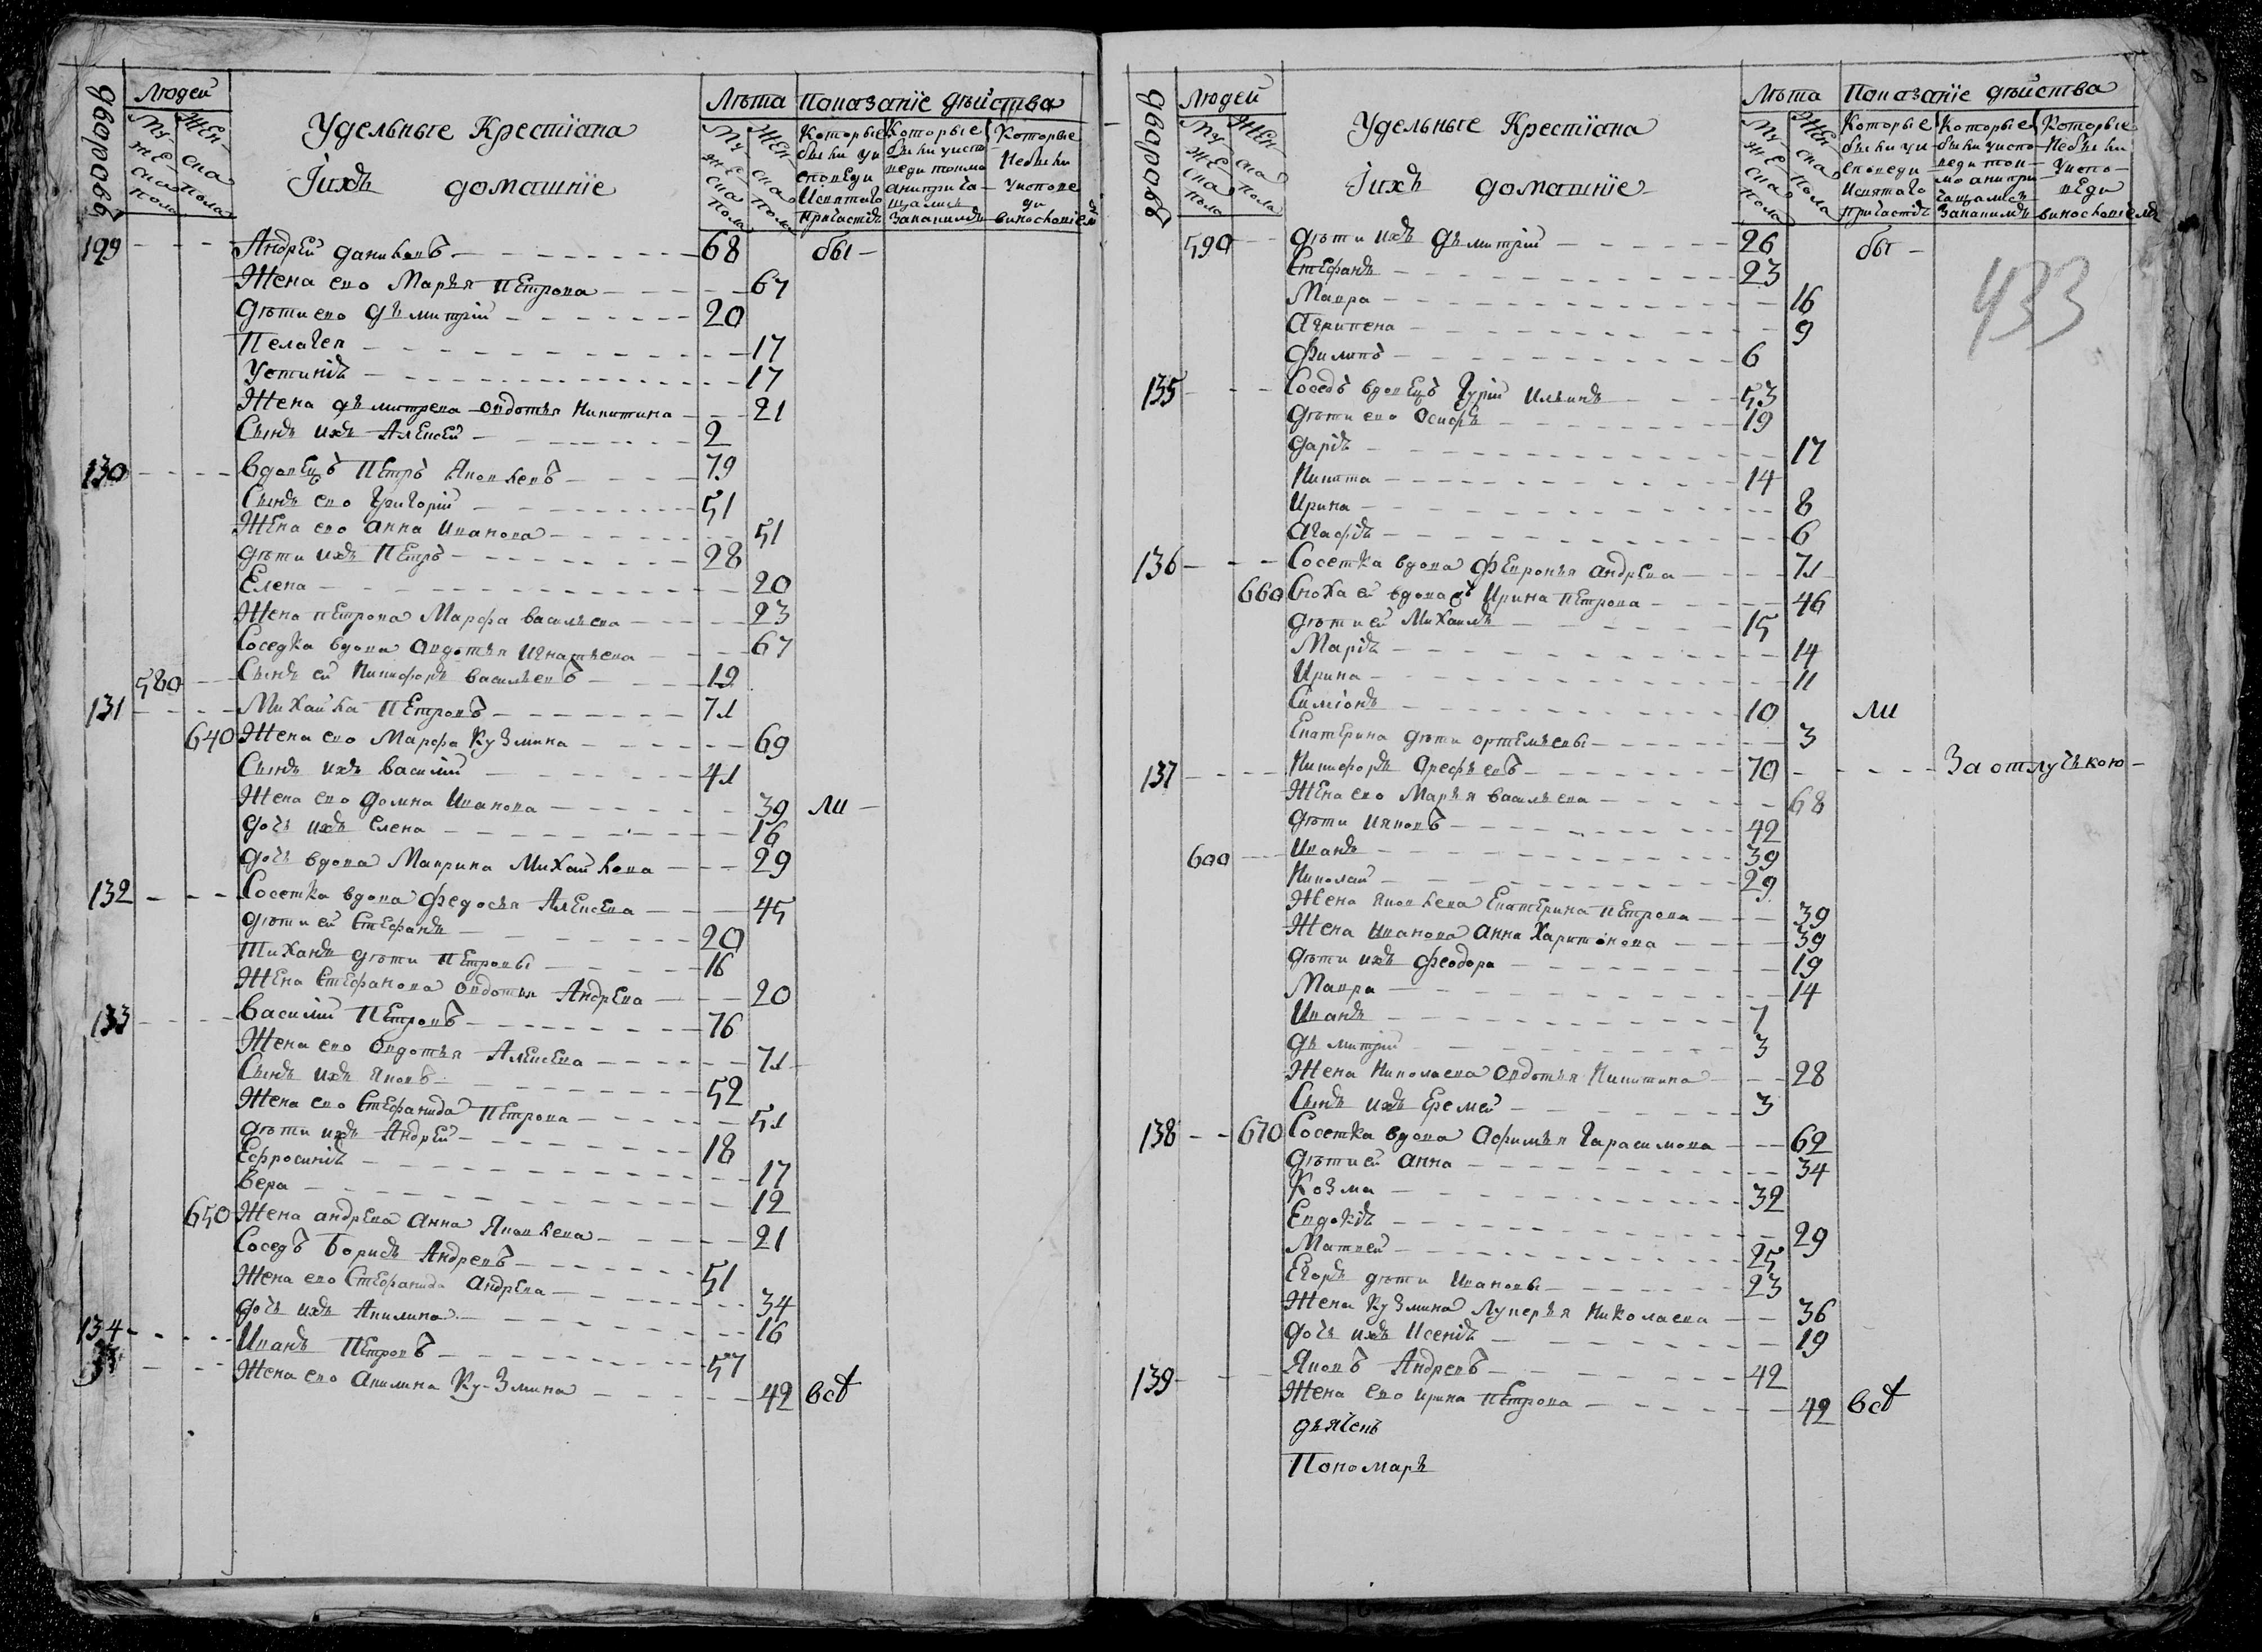 дворовъ Людей Лѣта Показанїе дѣйства
Мужеска пола Женска пола
Удельные Крестїана
Їихъ домашнїе
Мужеска пола Женска пола
Которые были уисповеди Исвятаго причастїя
Которые были уисповеди токмо анипричащались Закакимъ
Которые Небыли уисповеди
129 Андрей даниловъ 68 бы
Жена ево Марья петрова 67
дѣти ево дьмитрїй 20
Пелагея 17
Устинїя 17
Жена дьмитрева овдотья никитина 21
Сынъ ихъ Алексей 2
130 вдовецъ петръ Яковлевъ 79
Сынъ ево григорїй 51
Жена ево анна Иванова 51
дѣти ихъ петръ 28
Елена 20
Жена петрова Марфа васильева 23
Соседка вдова авдотья игнатьева 67
580 Сынъ ей Никифоръ васильевъ 19
131 Михайла петровъ 71
640 Жена ево Марфа Кузмина 69
Сынъ ихъ василїй 41
Жена ево домна Иванова 39 ли
дочь ихъ Елена 16
дочь вдова Маврина Михайлова 29
132 Сосетка вдова федосья Алексева 45
дѣти ей Стефанъ 20
Тиханъ дѣти петровы 16
Жена Стефанова овдотья Андрева 20
133 василїй петровъ 76
Жена ево овдотья Алексева 71
Сынъ ихъ яковъ 52
Жена ево Стефанида петрова 51
дѣти ихъ Андрей 18
Ефросинїя 17
вера 12
650 Жена андрева Анна Яковлева 21
Соседъ борисъ Андревъ 51
Жена ево Стефанида андрева 34
дочь ихъ Акилина 16
134 Иванъ петровъ 57
Жена ево акилина Кузмина 42 всѣ
дворовъ Людей Лѣта Показанїе дѣйства
Мужеска пола Женска пола
Удельные Крестїана
Їихъ домашнїе
Мужеска пола Женска пола
Которые были уисповеди Исвятаго причастїя
Которые были уисповеди токмо анипричащались Закакимъ
Которые Небыли уисповеди
433
590 дѣти ихъ дьмитрїй 26 бы
Стефанъ 23
Мавра 16
Агрипена 9
филипъ 6
135 Соседъ вдовецъ гурїй ильинъ 53
дѣти ево осифъ 19
дарїя 17
Никита 14
Ирина 8
агафїя 6
136 Сосетка вдова февронья андрева 71
660 Сноха ей вдова Ирина петрова 46
дѣти ей Михаилъ 15
Марїя 14
Ирина 11
Симїонъ 10 ли
Екатерина дѣти ортемьевы 3
137 Никифоръ орефьевъ 70 За отлучькою
Жена ево Марья васильева 68
дѣти ияковъ 42
600 Иванъ 39
Николай 29
Жена яковлева Екатерина петрова 39
Жена иванова анна Харитонова 39
дѣти ихъ феодора 19
Мавра 14
Иванъ 7
дьмитрїй 3
Жена Николаева овдотья Никитина 28
Сынъ ихъ Еремей 3
138 670 Сосетка вдова афимья гарасимова 62
дѣти ей анна 34
Козма 32
Евдокїя 29
Матвей 25
Егоръ дѣти Ивановы 23
Жена Кузмина Лукерья Николаева 36
дочь ихъ Ксенїя 19
139 Яковъ Андревъ 42
Жена ево ирина петрова 42 всѣ
дьячекъ
Пономарь